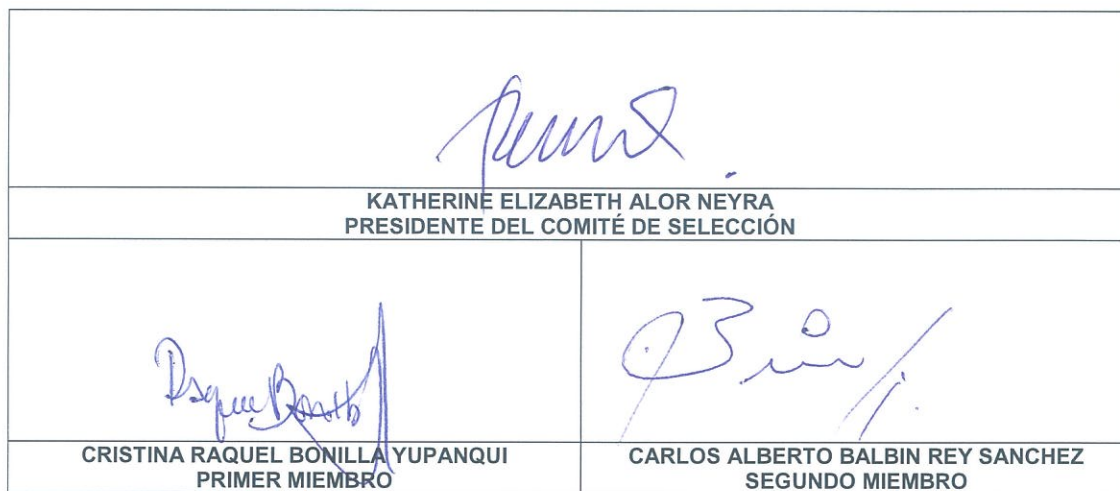 KATHERINE ELIZABETH ALOR NEYRA
PRESIDENTE DEL COMITÉ DE SELECCIÓN
Raquel Bonilla
CRISTINA RAQUEL BONILLA YUPANQUI
PRIMER MIEMBRO
CARLOS ALBERTO BALBIN REY SANCHEZ
SEGUNDO MIEMBRO